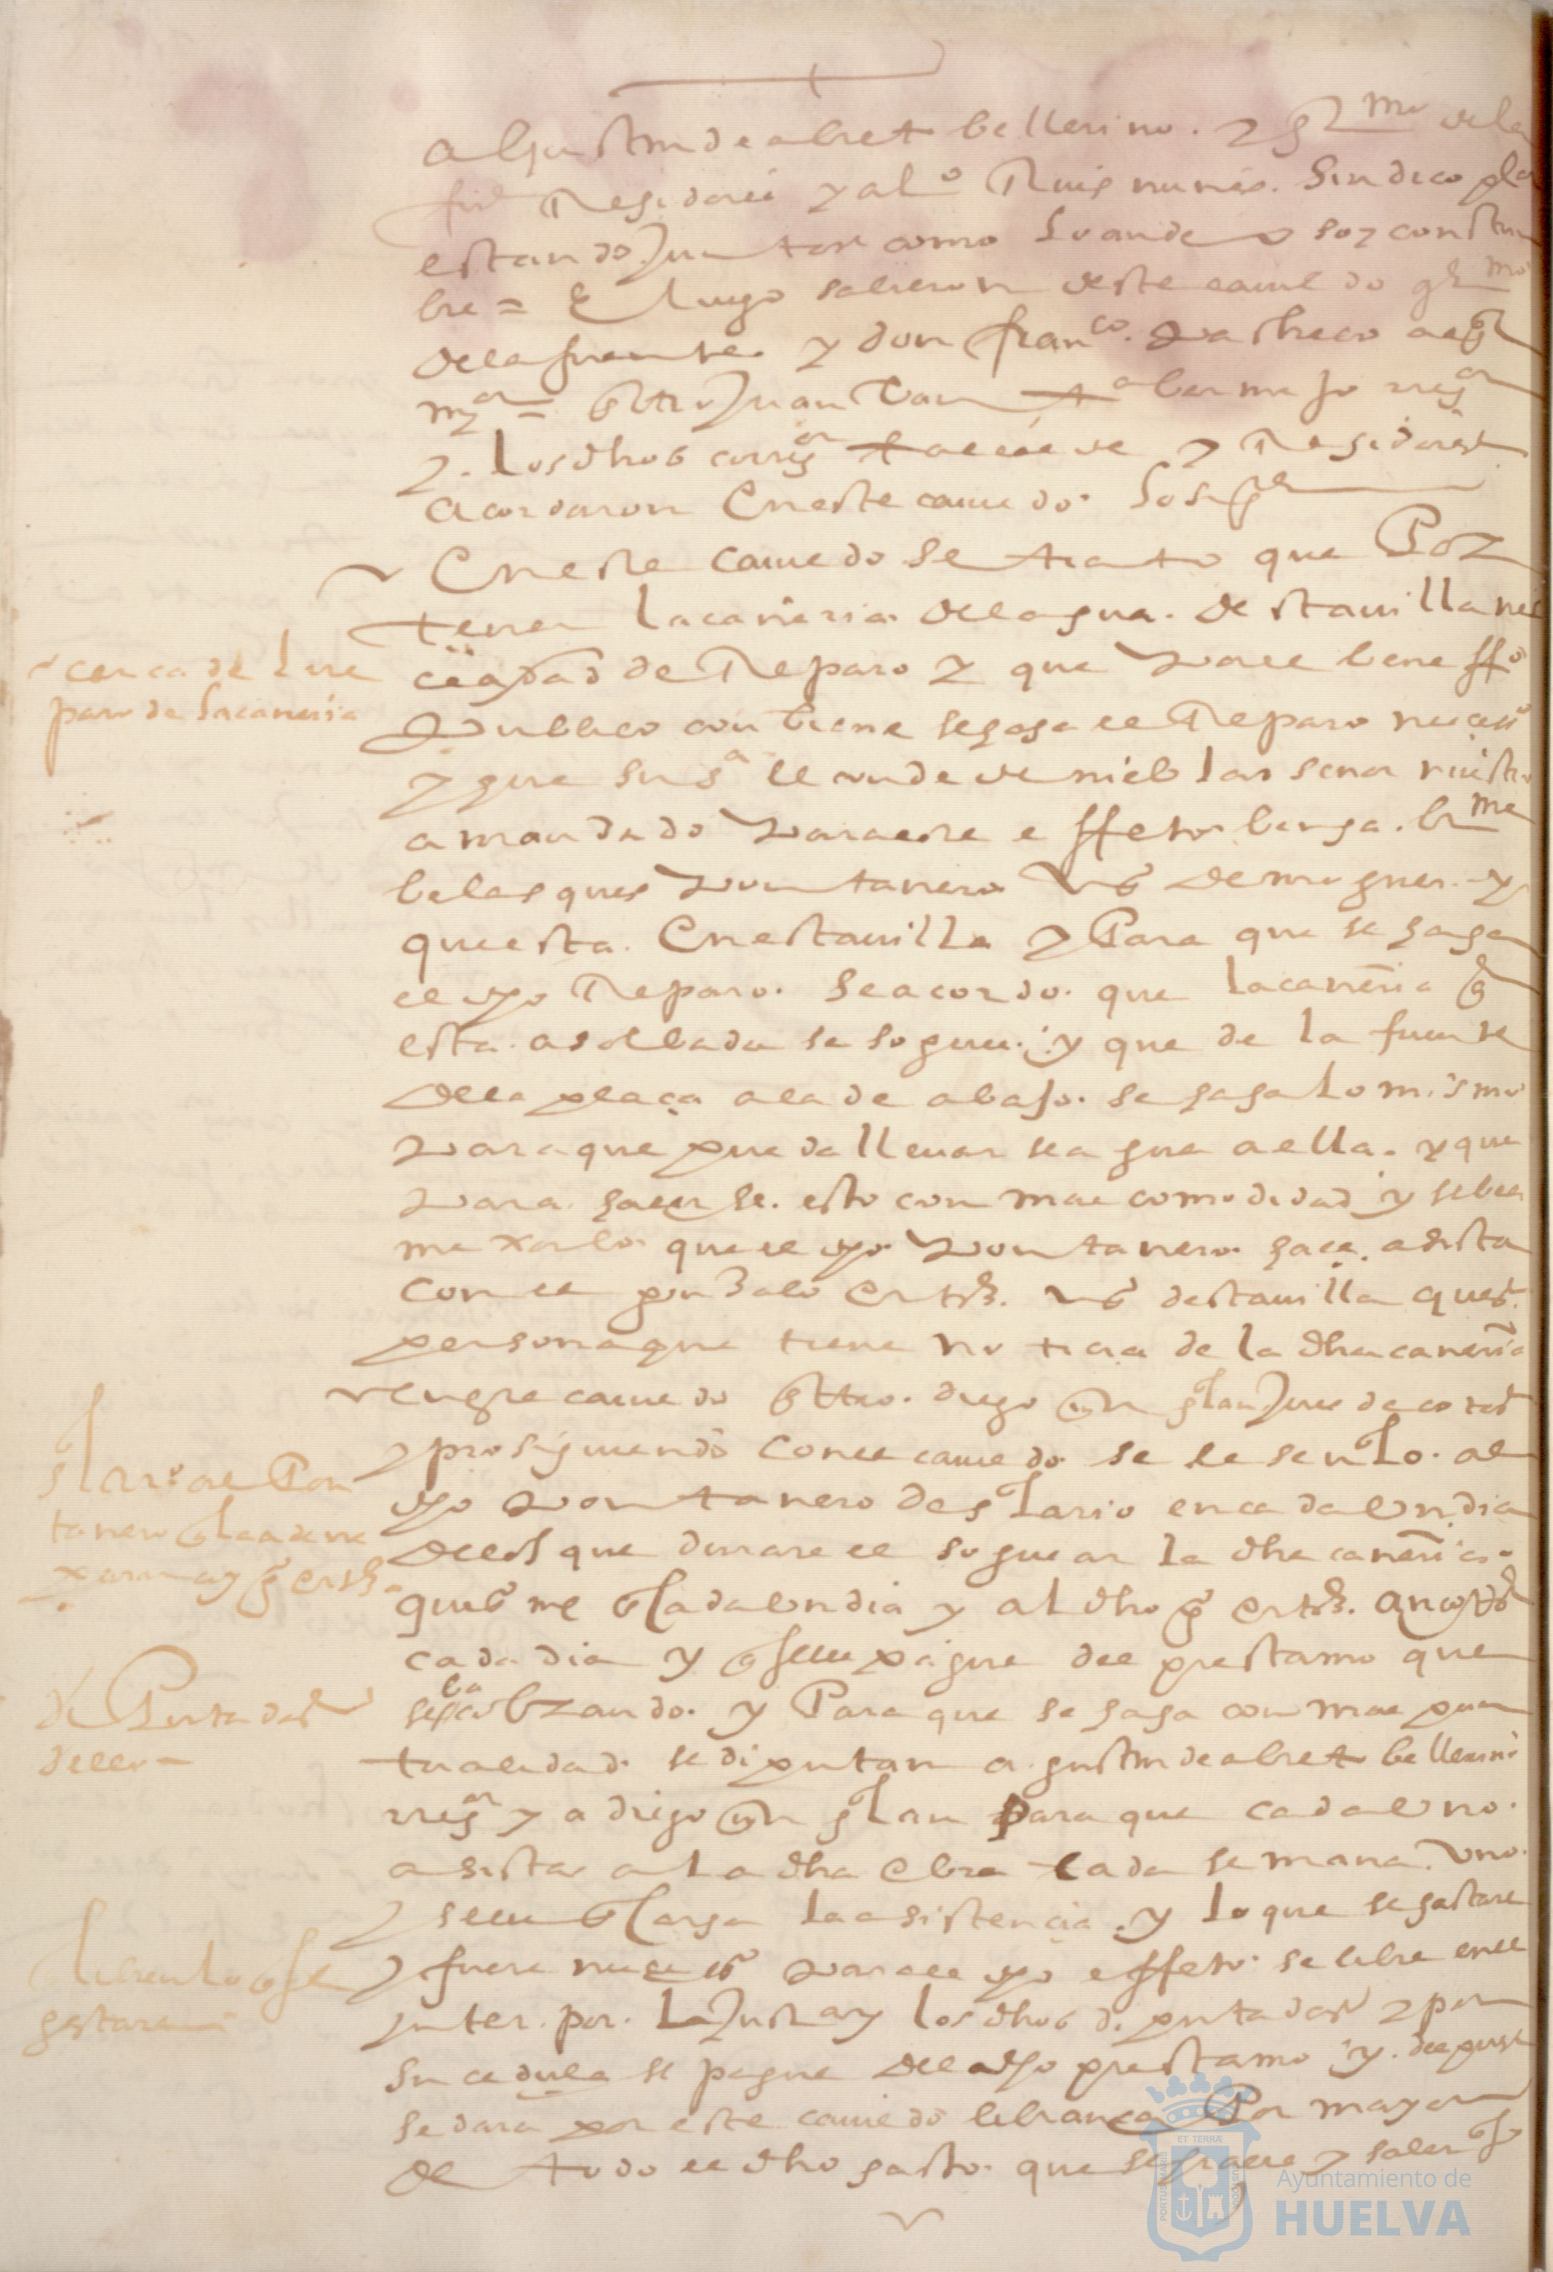 agustin de abret bellerino. y gr^mo de la
fu^te Regidores y al^o Ruis nunes. Sindico
estando Juntos como lo an de uso y constun
bre = E luego salieron deste cauildo gr^mo
de la fuente y don fran^co. pacheco alg^l
m^or = entro Juan bermejo rreg^or
y. los dhos correg^or alcalde y Regidores
acordaron En este cauildo. lo sig^te
En este cauildo se trato que Por
tener la caneria del agua. desta uilla ne
cesidad de Reparo y que para el benefi^o
publico conbiene se haga el Reparo neces^o
y que su s^a el conde de niebla señor nuestro
a mandado para este effeto benga. br^me
belasques pontanero v^o de moguer. y
que esta. En esta uilla y Para que se haga
el dho Reparo. Se acordo. que la caneria q
esta asolbada se sogue. y que de la fuente
de la plaça a la de abajo. se haga lo mismo
para que pueda lleuarse agua a ella. y que
para. hacerse. esto con mas comodidad y se bea
mexorlo. que el dho pontanero. hace. asista
con el gonzalo Ortis. v^o desta uilla ques.
persona que tiene noticia de la dha caneria
en este cauildo entro. diego grn galan Jues de
y prosiguiendo con el cauildo se le senalo. al
dho pontanero de salario en cada Un dia
de los que durare el soguear la dha caneria.
quinse Rs cada un dia y al dho g^o ortis. cinco Rs
cada dia y que se le pague del prestamo que
se ba cobrando. y Para que se haga con mas pun
tualidad. se diputan agustin de abret bellerino
rreg^or y a diego grn galan para que cada uno.
asista a la dha obra cada semana. Uno.
y se le encarga la asistencia. y lo que se gastare
y fuere necess^o para el dho effeto. se libre en el
inter. por. la Justa y los dhos diputados y por
su cedula se pague del dho prestamo y. despues
se dara por este cauildo librança Por mayor
de todo el dho gasto. que se hiciere y
cerca del rre
paro de la caneria
salar^o al Pon
tanero
y a g^o ortis
diputados
dello
libren lo que se
gastare
Ayuntamiento de
HUELVA